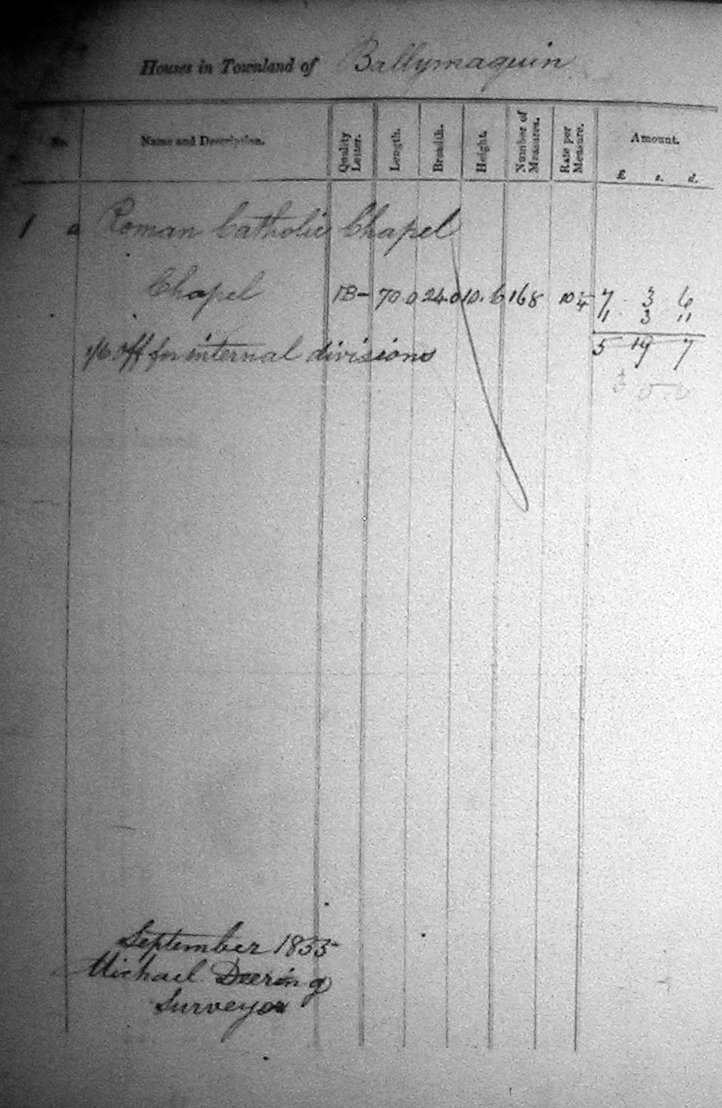 Houses in Townland of Ballymaquin
No. Name and Description. Quality Letter. Length. Breadth. Height. Number of Measures. Rate per Measure. Amount.
£ s. d.
1 a Roman Catholic Chapel
Chapel 1B- 70.0 24.0 10.6 168 10¼ 7 3 6
1 3 11
1/6 off for internal divisions 5 19 7
September 1855
Michael Deering
Surveyor